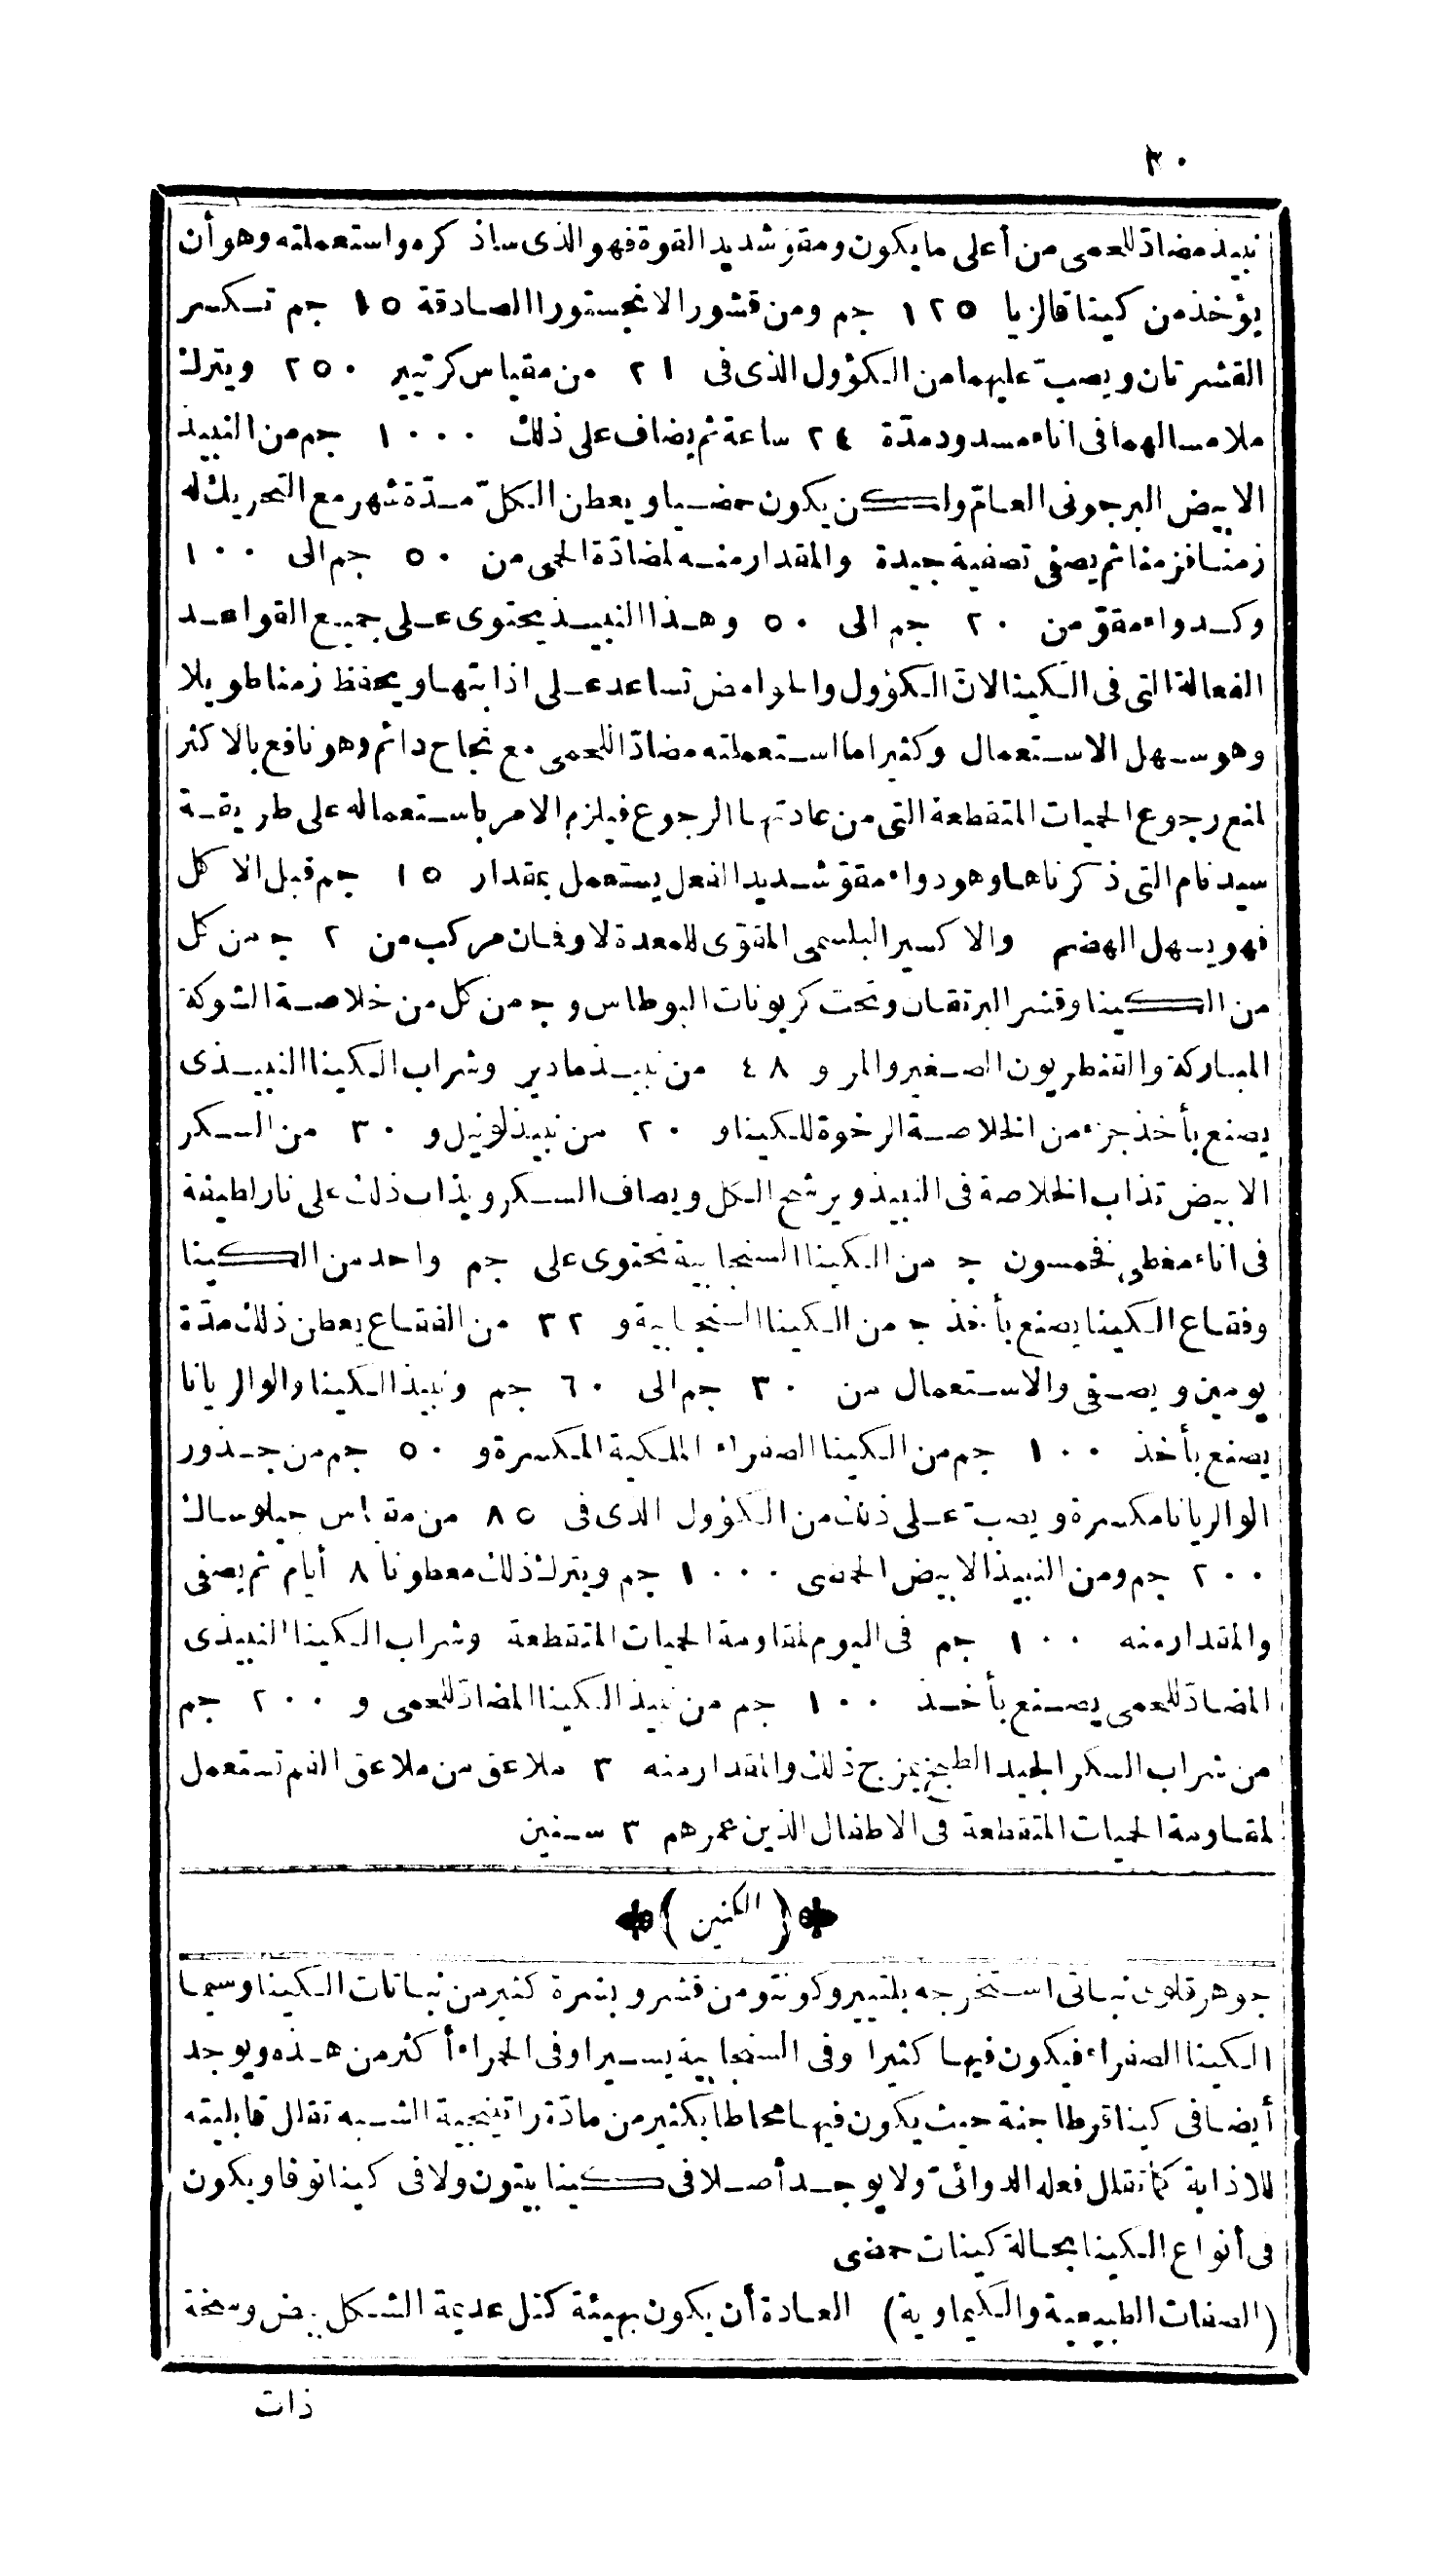 ٣٠
نبيذ مضادّ للحمى من أعلى ما يكون ومقوّ شديد القوة فهو الذى ساذكره واستعملته وهو أن
يؤخذ من كينا قالزيا ١٢٥ جم ومن قشور الانجستورا الصادقة ١٥ جم تكسر
القشرتان ويصبّ عليهما من الكؤول الذى فى ٢١ من مقياس كرتيير ٢٥٠ ويترك
ملامسا لهما فى اناء مسدود مدّة ٢٤ ساعة ثم يضاف على ذلك ١٠٠٠ جم من النبيذ
الابيض البرجونى العامّ ولكن يكون حمضيا ويعطن الكلّ مدّة شهر مع التحريك له
زمنا فزمنا ثم يصفى تصفية جيدة والمقدار منه لمضادّة الحمى من ٥٠ جم الى ١٠٠
وكدواء مقوّ من ٢٠ جم الى ٥٠ وهذا النبيذ يحتوى على جميع القواعد
الفعالة التى فى الكينا لانّ الكؤول والحوامض تساعد على اذابتها ويحفظ زمنا طويلا
وهو سهل الاستعمال وكثيرا ما استعملته مضادّا للحمى مع نجاح دائم وهو نافع بالاكثر
لمنع رجوع الحميات المتقطعة التى من عادتها الرجوع فيلزم الامر باستعماله على طريقة
سيدنام التى ذكرناها وهو دواء مقوّ شديد الفعل يستعمل بمقدار ١٥ جم قبل الاكل
فهو يسهل الهضم والاكسير البلسمى المقوّى للمعدة لاوفمان مركب من ٢ ج من كل
من الكينا وقشر البرتقان وتحت كربونات البوطاس و ج من كل من خلاصة الشوكة
المباركة والقنطريون الصغير والمر و ٤٨ من نبيذ مادير وشراب الكينا النبيذى
يصنع بأخذ جزء من الخلاصة الرخوة للكينا و ٢٠ من نبيذ لونيل و ٣٠ من السكر
الابيض تذاب الخلاصة فى النبيذ ويرشح الكل ويضاف السكر ويذاب ذلك على نار لطيفة
فى اناء مغطى فخمسون ج من الكينا السنجابية تحتوى على جم واحد من الكينا
وفقاع الكينا يصنع بأخذ ج من الكينا السنجابية و ٣٢ من الفقاع يعطن ذلك مدّة
يومين ويصفى والاستعمال من ٣٠ جم الى ٦٠ جم ونبيذ الكينا والوالريانا
يصنع بأخذ ١٠٠ جم من الكينا الصفراء الملكية المكسرة و ٥٠ جم من جذور
الوالريانا مكسرة ويصبّ على ذلك من الكؤول الذى فى ٨٥ من مقياس جيلوساك
٢٠٠ جم ومن النبيذ الابيض الحمضى ١٠٠٠ جم ويترك ذلك معطونا ٨ أيام ثم يصفى
والمقدار منه ١٠٠ جم فى اليوم لمقاومة الحميات المتقطعة وشراب الكينا النبيذى
المضادّ للحمى يصنع بأخذ ١٠٠ جم من نبيذ الكينا المضادّ للحمى و ٢٠٠ جم
من شراب السكر الجيد الطبخ يمزج ذلك والمقدار منه ٣ ملاعق من ملاعق الفم تستعمل
لمقاومة الحميات المتقطعة فى الاطفال الذين عمرهم ٣ سنين
(الكنين)
جوهر قلوى نباتى استخرجه بلتيير وكونتو من قشر وبشرة كثير من نباتات الكينا وسيما
الكينا الصفراء فيكون فيها كثيرا وفى السنجابية يسيرا وفى الحمراء أكثر من هذه ويوجد
أيضا فى كينا قرطاجنة حيث يكون فيها محاطا بكثير من مادّة راتينجية الشبه تقلل قابليته
للاذابة كما تقلل فعله الدوائىّ ولا يوجد أصلا فى كينا بيتون ولا فى كينا نوفا ويكون
فى أنواع الكينا بحالة كينات حمضى
(الصفات الطبيعية والكيماوية) العادة أن يكون بهيئة كتل عديمة الشكل بيض وسخة
ذات